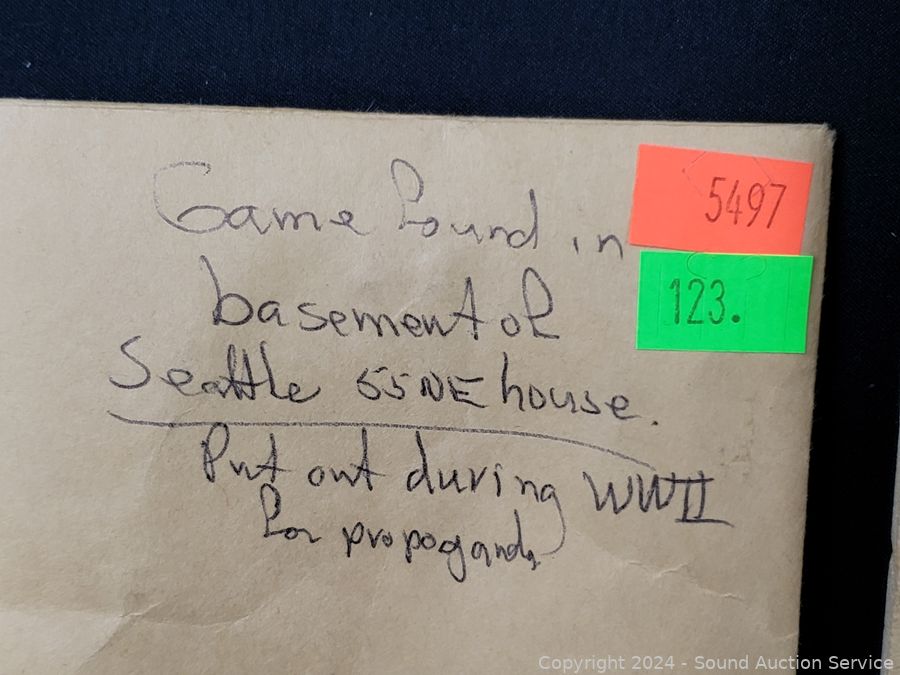 Game found in
basement of
Seattle 55NE house.
Put out during WWII
for propoganda
5497
123.
Copyright 2024 - Sound Auction Service